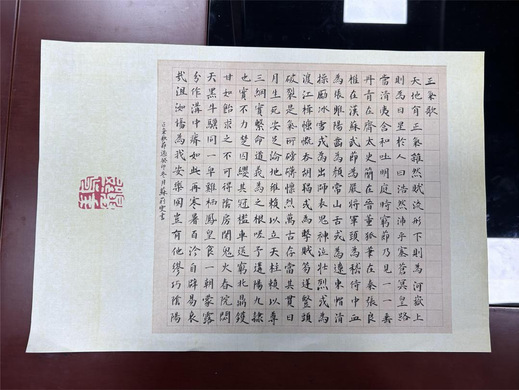 正氣歌
天地有正氣雜然賦流形下則為河嶽上
則為日星於人曰浩然沛乎塞蒼冥皇路
當清夷含和吐明庭時窮節乃見一一垂
丹青在齊太史簡在晉董狐筆在秦張良
椎在漢蘇武節為嚴將軍頭為嵇侍中血
為張睢陽齒為顏常山舌或為遼東帽清
操厲冰雪或為出師表鬼神泣壯烈或為
渡江楫慷慨吞胡羯或為擊賊笏逆豎頭
破裂是氣所磅礴凜烈萬古存當其貫日
月生死安足論地維賴以立天柱賴以尊
三綱實繫命道義為之根嗟予遘陽九隸
也實不力楚囚纓其冠傳車送窮北鼎鑊
甘如飴求之不可得陰房闃鬼火春院閟
天黑牛驥同一皁雞栖鳳凰食一朝蒙露
分作溝中瘠如此再寒暑百沴自辟易哀
哉沮洳場為我安樂國豈有他繆巧陰陽
正氣歌節錄癸卯冬月蘇莉書